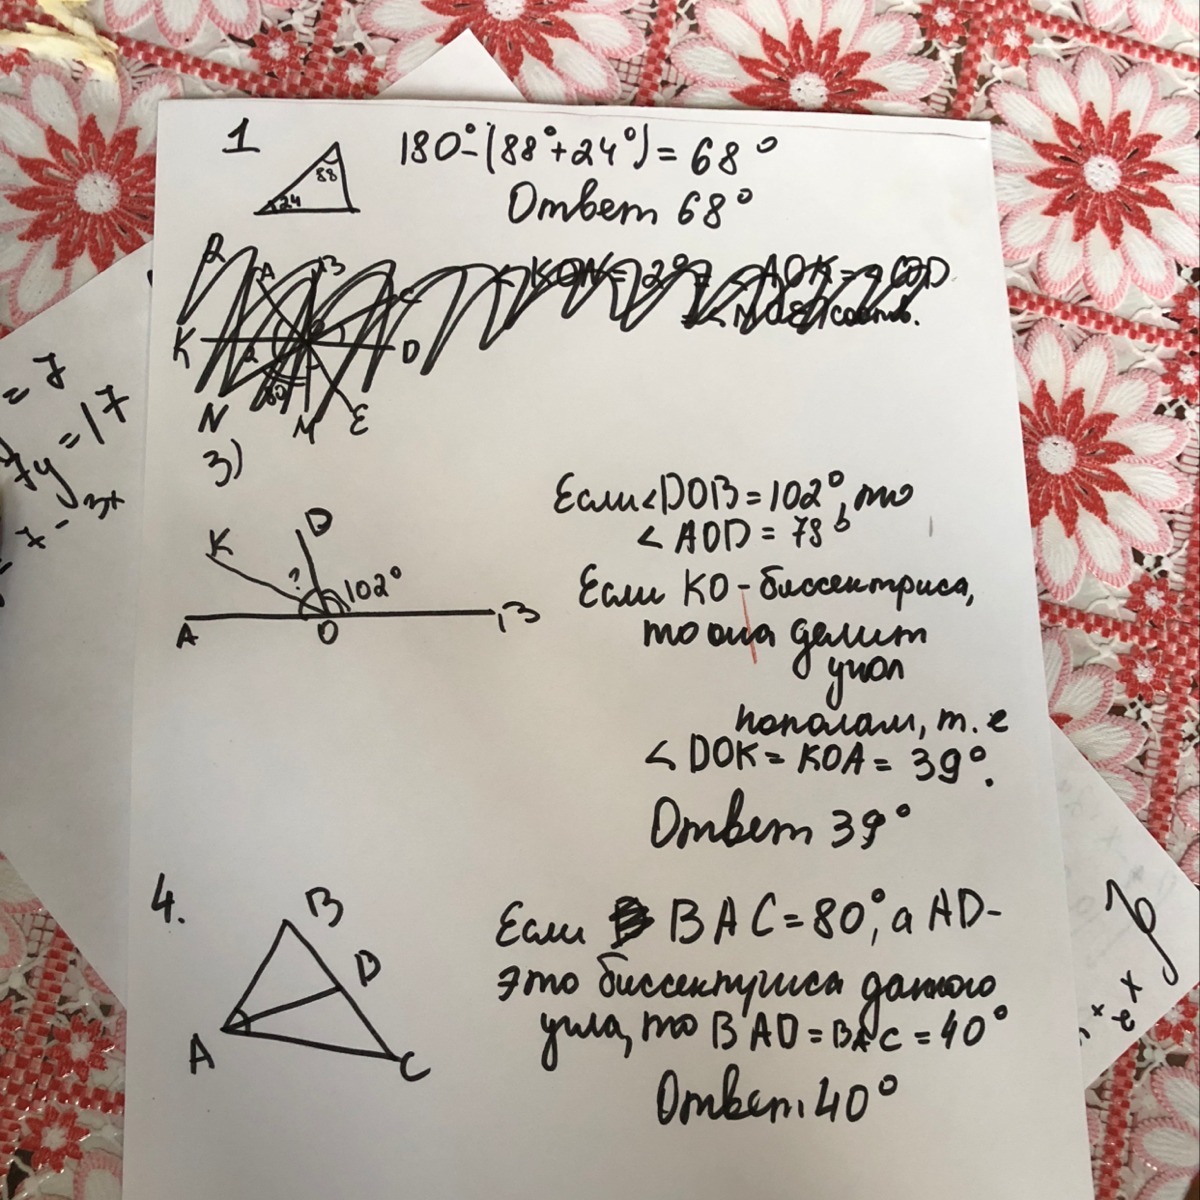 1
180°-(88°+24°)=68°
88
24
Ответ 68°
2
A
B
C
KON=2°
AOK=
COD
K
2
D
80
N
M
E
3)
Если<DOB=102°, то
<AOD=78°
K
D
?
102°
A
O
B
Если KO-биссектриса,
то она делит
угол
пополам, т.е
<DOK=KOA=39°.
Ответ 39°
4.
B
D
A
C
Если BAC=80°, а AD-
это биссектриса данного
угла, то BAD=BAC=40°
Ответ. 40°
=7
7y=17
7x-3x
x
e
x